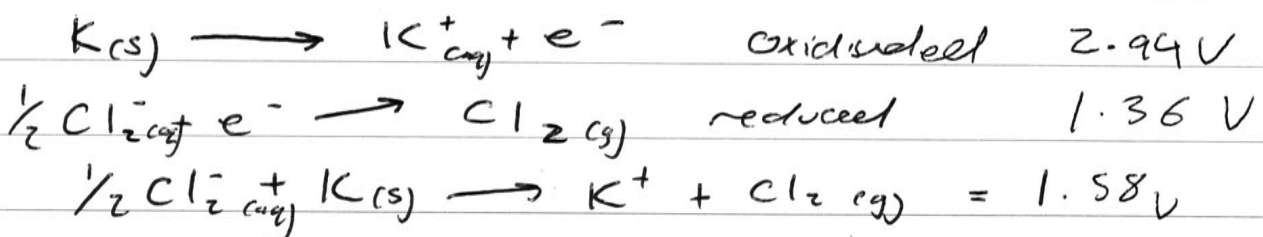 K(s) ⟶ K⁺(aq) + e⁻ oxidisded 2.94 V
½ Cl₂⁻(aq) + e⁻ ⟶ Cl₂(g) reduced 1.36 V
½ Cl₂⁻(aq) + K(s) ⟶ K⁺ + Cl₂(g) = 1.58 V